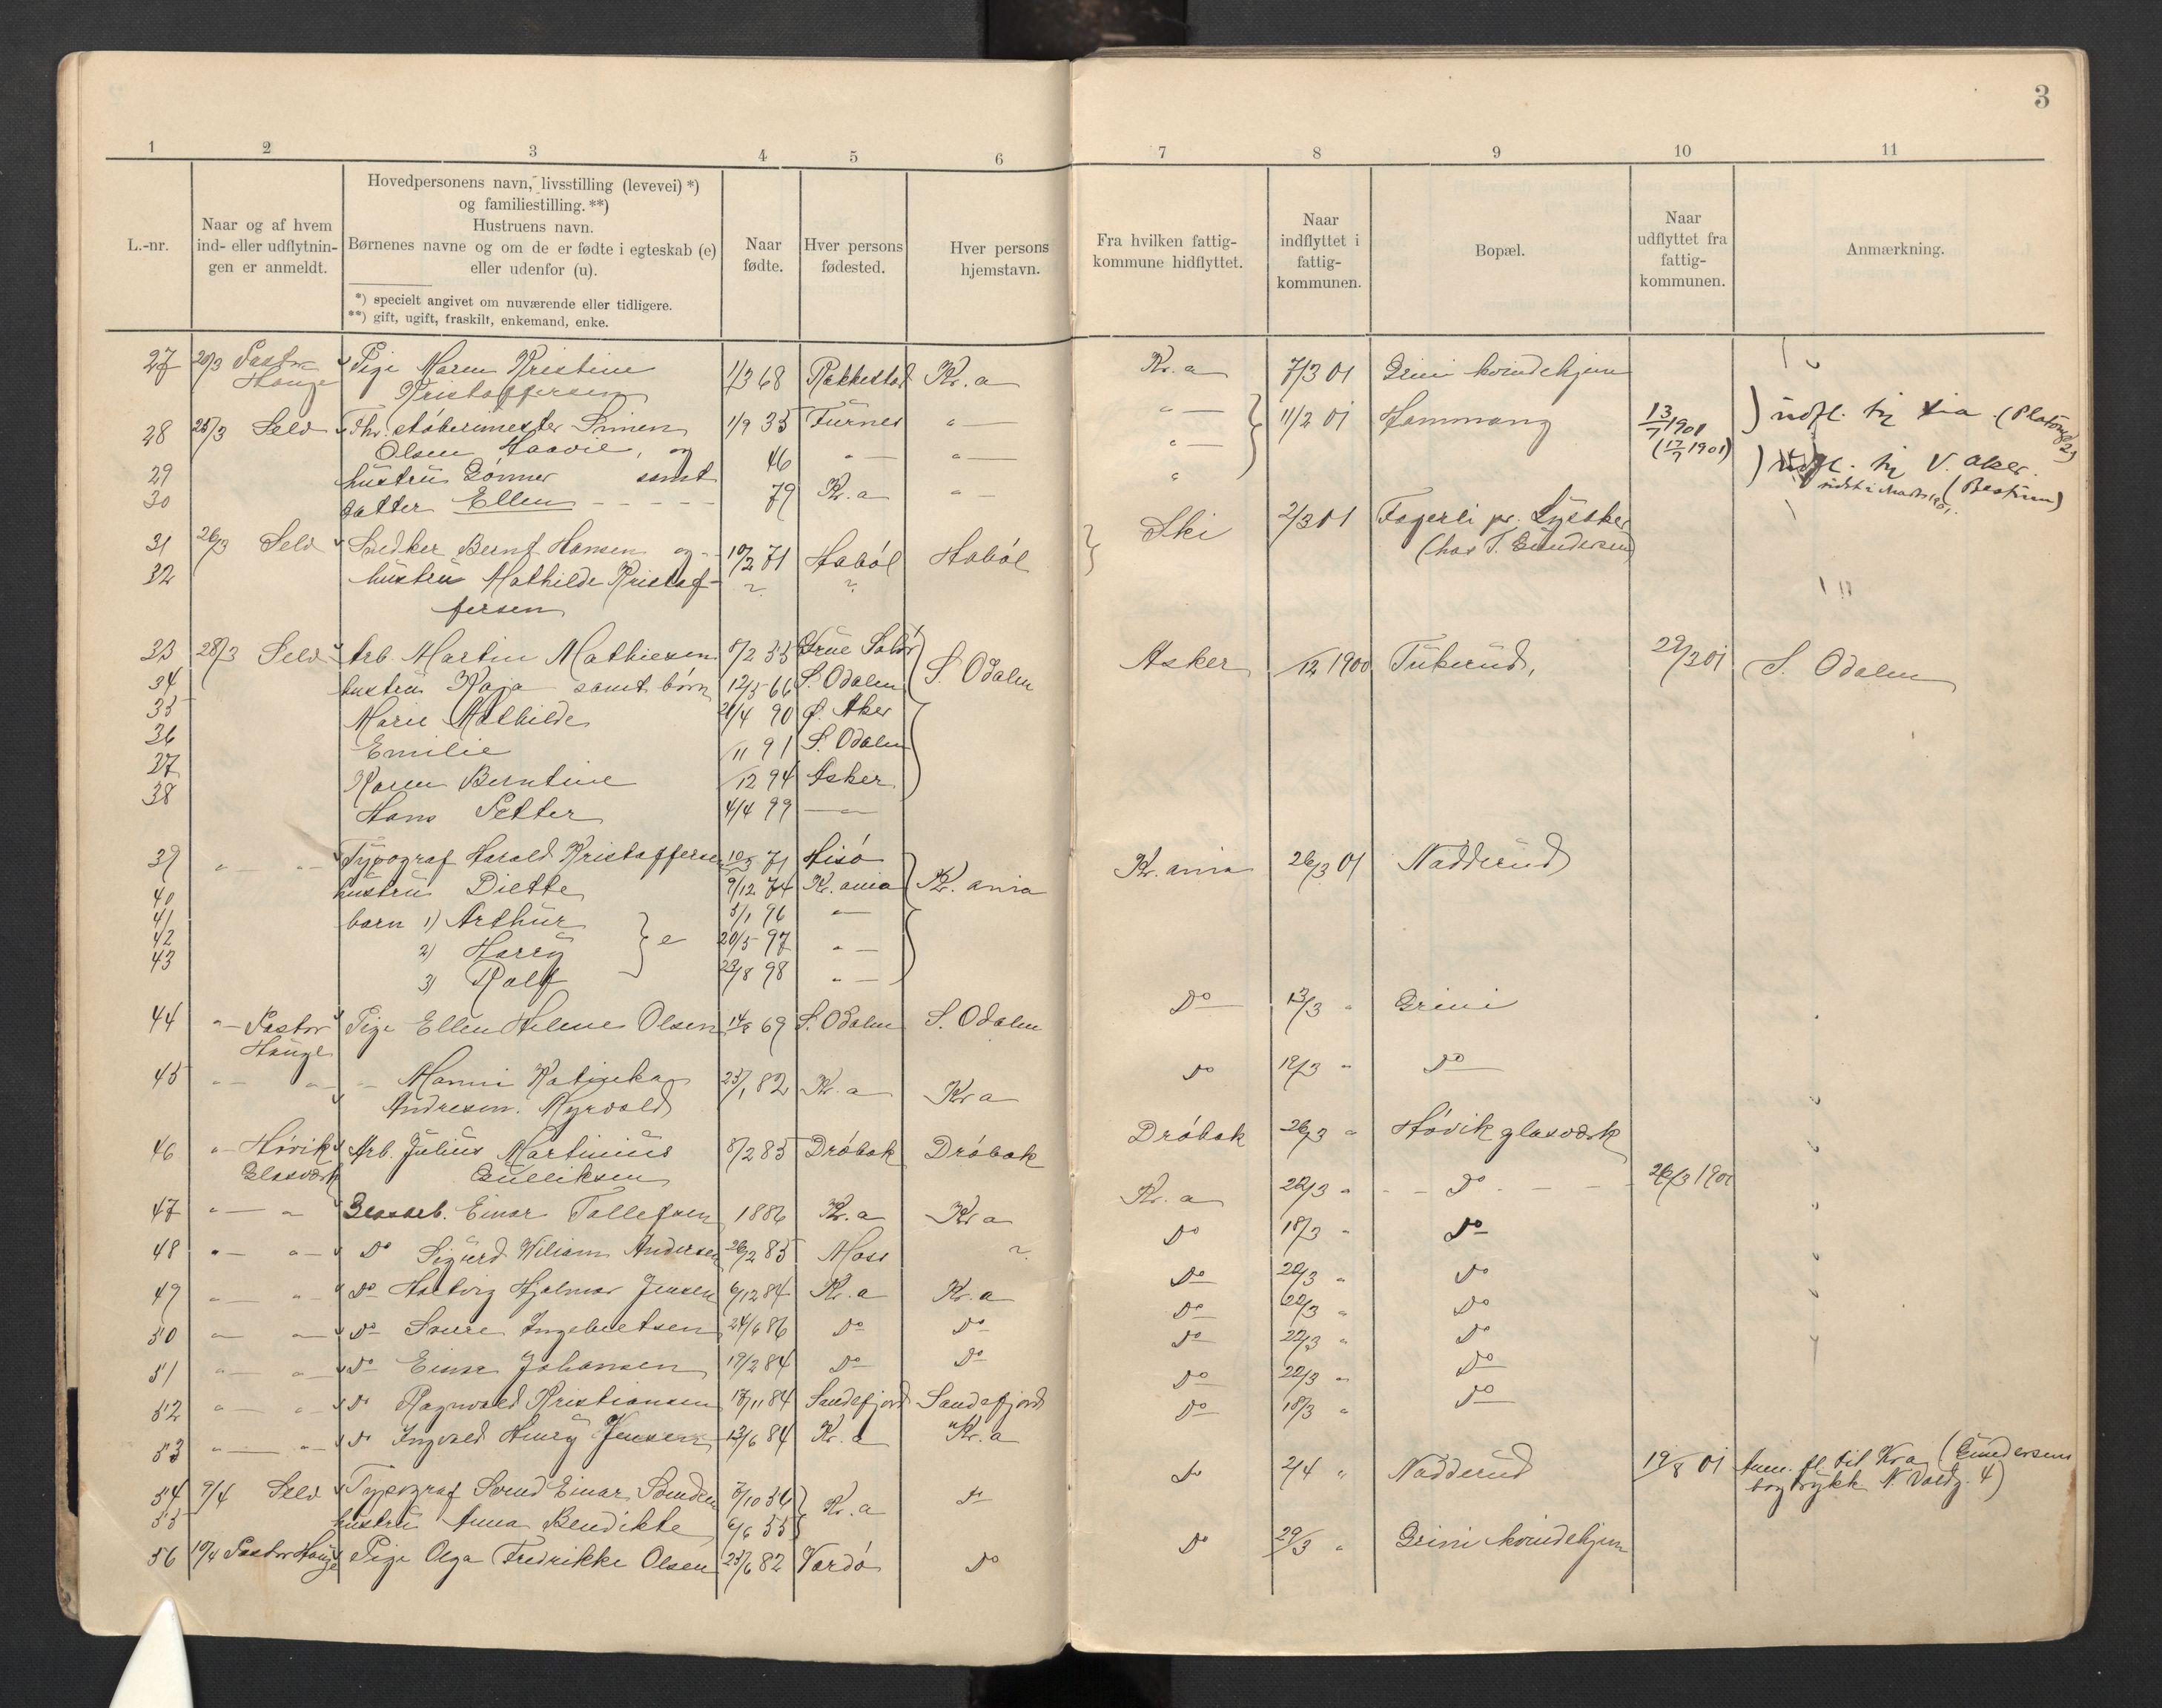 3
1 2 3 4 5 6 7 8 9 10 11
L.-nr.
Naar og af hvem
ind- eller udflytnin-
gen er anmeldt.
Hovedpersonens navn, livsstilling (levevei) *)
og familiestilling. **)
Hustruens navn.
Børnenes navne og om de er fødte i egteskab (e)
eller udenfor (u).
*) specielt angivet om nuværende eller tidligere.
**) gift, ugift, fraskilt, enkemand, enke.
Naar
fødte.
Hver persons
fødested.
Hver persons
hjemstavn.
Fra hvilken fattig-
kommune hidflyttet.
Naar
indflyttet i
fattig-
kommunen.
Bopæl.
Naar
udflyttet fra
fattig-
kommunen.
Anmærkning.
27 20/3 Pastor Pige Maren Kristine 1/3 68 Rakkestad Kr.a Kr.a 7/3 01 Grini kvindehjem
Hauge Kristoffersen
28 25/3 Selv Fhv. støberimester Simen 1/9 35 Furnes "— "— 11/2 01 Hammang 13/7 1901 ) udfl. til Kia (Platous
Olsen Haavie, og 46 "— "— "— (17/7 1901)
29 hustru Gønner samt " ) udfl. til V. Aker.
30 datter Ellen 79 Kr.a "— (Bestum)
31 26/3 Selv Snedker Bernt Hansen og 10/2 71 Habøl Habøl Ski 2/3 01 Fagerli pr. Lysaker
(hos T. Gundersen)
32 hustru Mathilde Kristof- ? ?
fersen
33 28/3 Selv Arb. Martin Mathiesen 8/2 55 Grue Solør S. Odalen Asker /12 1900 Tukerud, 29/3 01 S. Odalen
34 hustru Kaja samt børn 12/5 66 S. Odalen
35 Marie Mathilde 21/4 90 Ø. Aker
36 Emilie /11 91 S. Odalen
37 Karen Berntine /12 94 Asker
38 Hans Petter 4/4 99 —
39 "— "— Typograf Harald Kristoffersen 10/3 71 Hisø Kr.ania Kr.ania 26/3 01 Nadderud
40 hustru Diette 9/12 74 Kr.ania
41 barn 1) Arthur 5/1 96 "—
42 2) Harry e 20/5 97 "—
43 3) Ralf 23/8 98 "—
44 "— Pastor Pige Ellen Helene Olsen 14/8 69 S. Odalen S. Odalen Do 13/3 " Grini
Hauge
45 "— "— "— Manni Katinka 25/1 82 Kr.a Kr a Do 19/3 " Do
Andresen. Myrvold
46 "— Høvik Arb. Julius Martinius 8/2 85 Drøbak Drøbak Drøbak 26/3 " Høvik glasværk
Glasværk Gulliksen
47 "— " Glasarb. Einar Tollefsen 1886 Kr.a Kr a Kr.a 22/3 " Do 26/3 1901
48 "— "— Do Sigurd Wiliam Andersen 26/2 85 Moss ? Do 18/3 " Do
49 "— "— Do Hartvig Hjalmar Jensen 6/12 84 Kr.a Kr.a Do 22/3 " Do
50 "— "— Do Sverre Ingebretsen 24/6 86 Do Do Do 22/3 " Do
51 "— "— Do Einar Johansen 19/2 84 Do Do Do 22/3 " Do
52 "— "— Do Ragnvald Kristiansen 13/11 84 Sandefjord Sandefjord Do 22/3 " Do
53 "— "— Do Ingvald Henry Jensen 13/6 84 Kr.a Kr.a Do 18/3 " Do
54 9/4 Selv Typograf Svend Einar 8/10 56 Kr.a Do Do 2/4 " Nadderud 19/8 01 Anm. fl. til Kra (Gundersens
55 hustru Anna Bendikte 6/6 55 bogtrykk. N. Voldg. 4)
56 10/4 Pastor Hauge Pige Olga Fredrikke Olsen 25/6 82 Vardø Do Do 29/3 " Grini kvindehjem